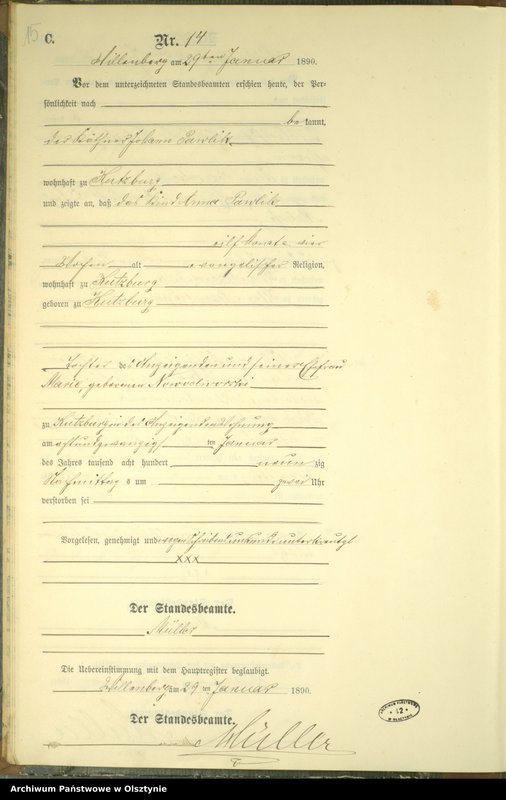 15
C.
Nr. 14
Willenberg am 29ten Januar 1890.
Vor dem unterzeichneten Standesbeamten erschien heute, der Per-
sönlichkeit nach
be kannt,
der Käthner Johann Pawlik
wohnhaft zu Kutzburg
und zeigte an, daß das Kind Anna Pawlik
eilf Monate vier
Wochen alt evangelischer Religion,
wohnhaft zu Kutzburg
geboren zu Kutzburg
Tochter des Anzeigenden und seiner Ehefrau
Marie, geborenen
zu Kutzburg in des Anzeigenden Wohnung
am achtundzwanzigsten Januar
des Jahres tausend acht hundert neun zig
Nachmittag s um zwei Uhr
verstorben sei
Vorgelesen, genehmigt und wegen Schreibensunkunde unterkreuzt
xxx
Der Standesbeamte.
Müller
Die Uebereinstimmung mit dem Hauptregister beglaubigt.
Willenberg am 29 ten Januar 1890.
Der Standesbeamte.
Müller
ARCHIWUM PAŃSTWOWE
12
W OLSZTYNIE
Archiwum Państwowe w Olsztynie